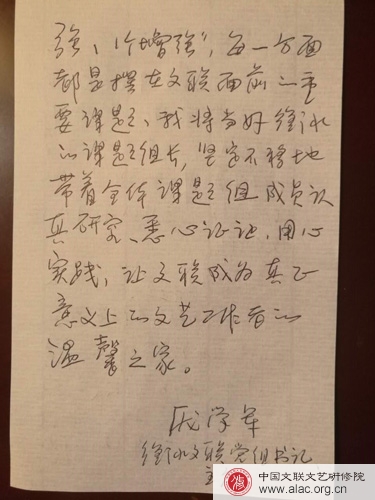 强、1个增强”，每一方面
都是摆在文联面前的重
要课题、我将当好衡水
的课题组长，坚定不移地
带着全体课题组成员认
真研究、悉心论证，用心
实践，让文联成为真正
意义上的文艺工作者的
温馨之家。
学军
衡水文联党组书记
中国文联文艺研修院
www.alac.org.cn